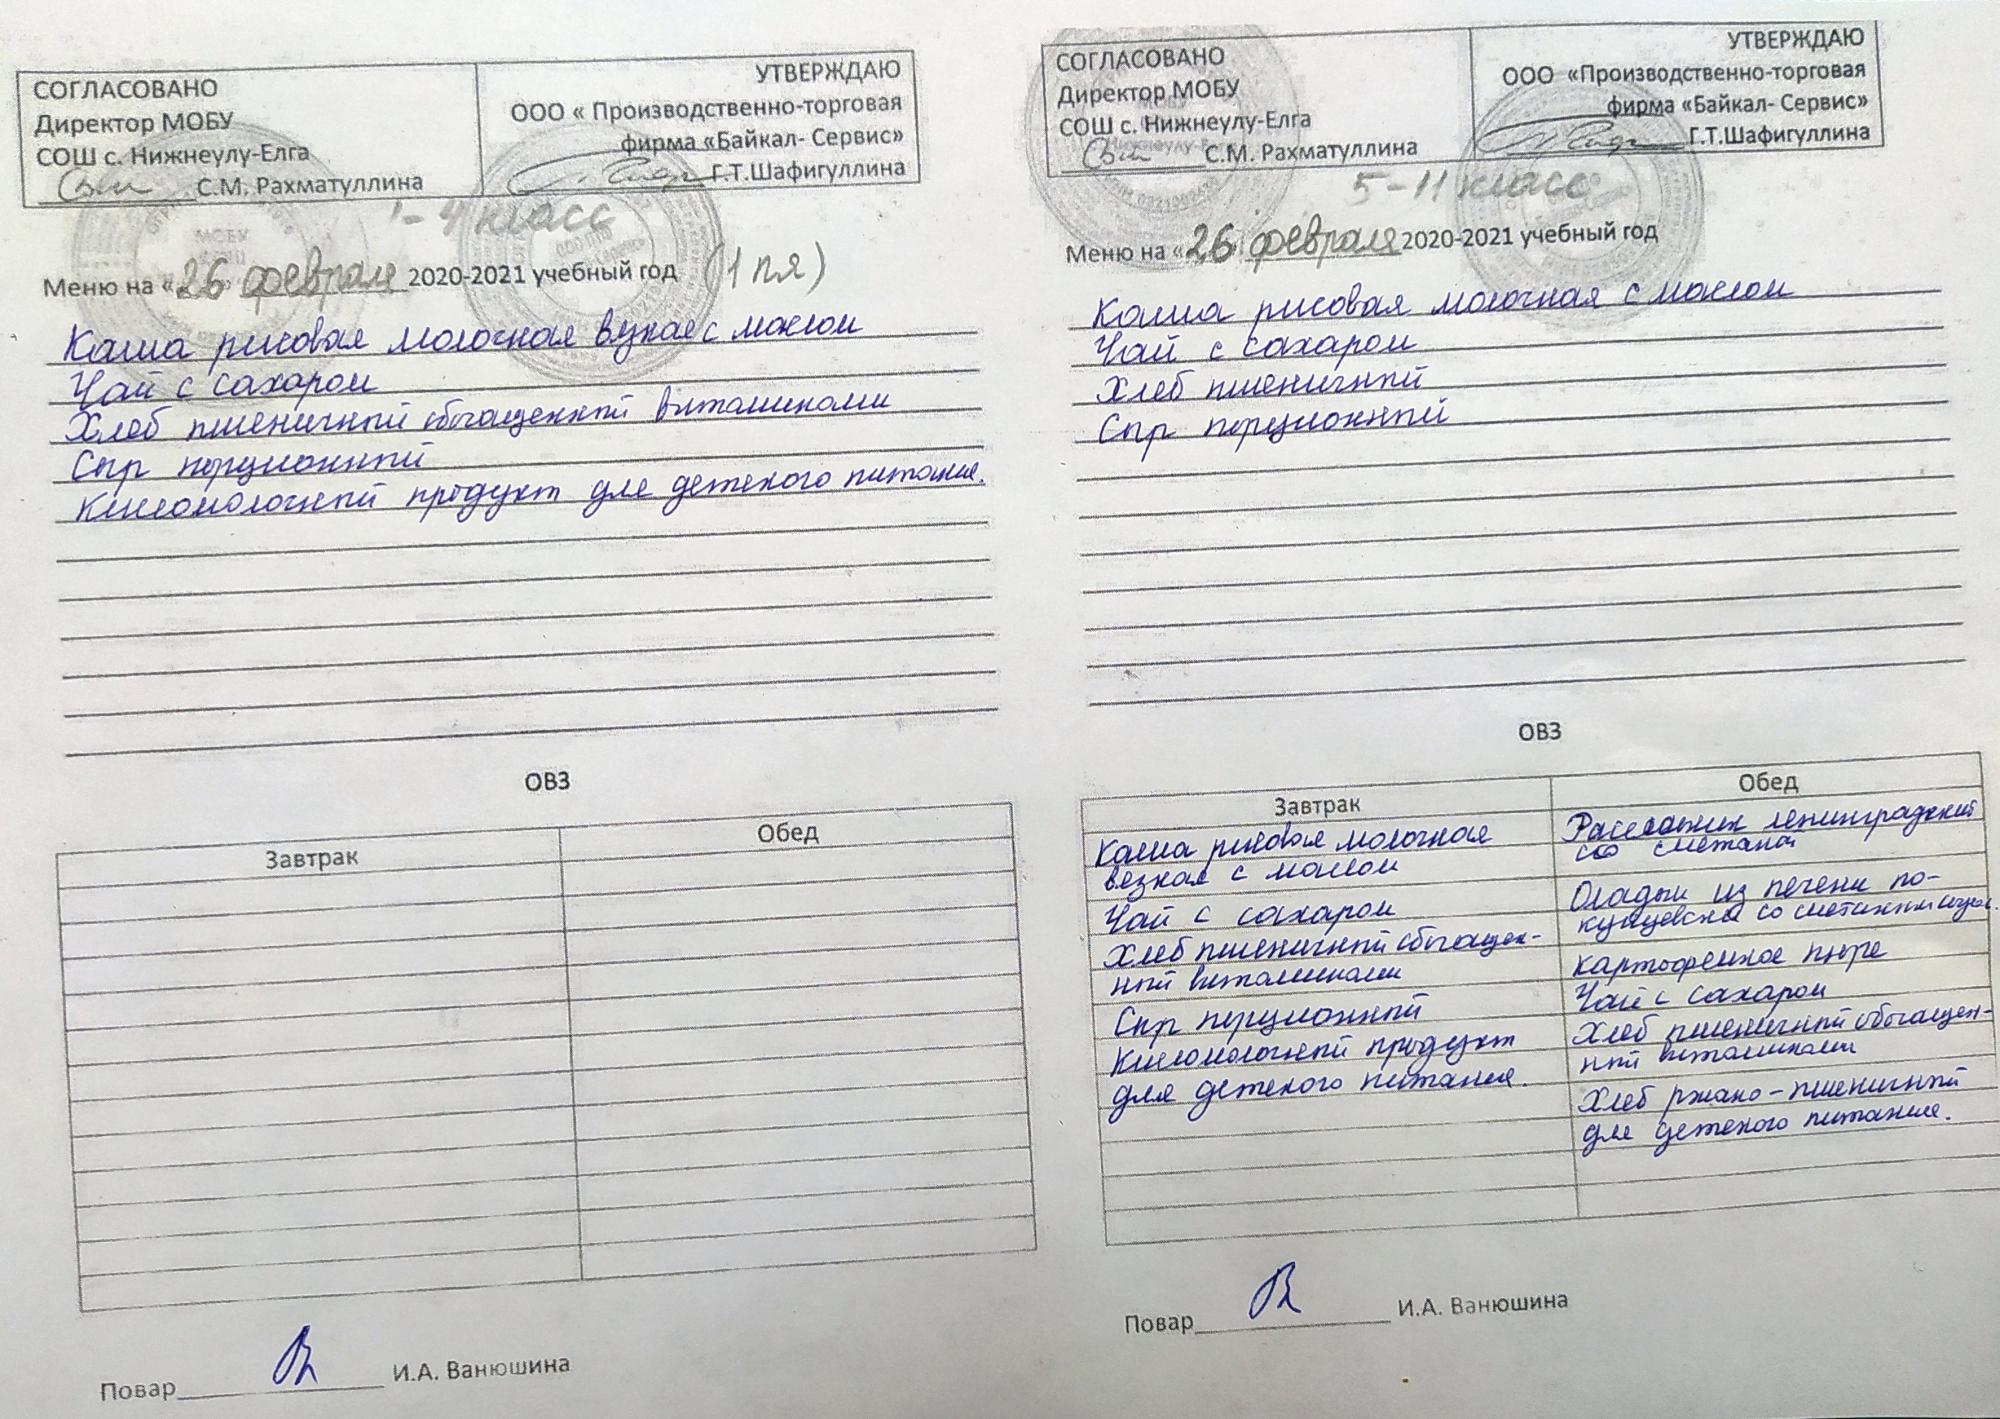 СОГЛАСОВАНО
Директор МОБУ
СОШ с. Нижнеулу-Елга
С.М. Рахматуллина
УТВЕРЖДАЮ
ООО « Производственно-торговая
фирма «Байкал- Сервис»
Г.Т.Шафигуллина
1-4 класс
Меню на «26» февраля 2020-2021 учебный год (1 пя)
Каша рисовая молочная вязкая с маслом
Чай с сахаром
Хлеб пшеничный обогащенный витаминами
Сыр порционный
Кисломолочный продукт для детского питания.
ОВЗ
Завтрак
Обед
Повар И.А. Ванюшина
СОГЛАСОВАНО
Директор МОБУ
СОШ с. Нижнеулу-Елга
С.М. Рахматуллина
УТВЕРЖДАЮ
ООО «Производственно-торговая
фирма «Байкал- Сервис»
Г.Т.Шафигуллина
5-11 класс
Меню на «26» февраля 2020-2021 учебный год
Каша рисовая молочная с маслом
Чай с сахаром
Хлеб пшеничный
Сыр порционный
ОВЗ
Завтрак
Каша рисовая молочная
вязкая с маслом
Чай с сахаром
Хлеб пшеничный обогащен-
ный витаминами
Сыр порционный
Кисломолочный продукт
для детского питания.
Обед
Рассольник ленинградский
со сметаной
Оладьи из печени по-
кунцевски со сметанным соусом.
картофельное пюре
Чай с сахаром
Хлеб пшеничный обогащен-
ный витаминами
Хлеб ржано-пшеничный
для детского питания.
Повар И.А. Ванюшина